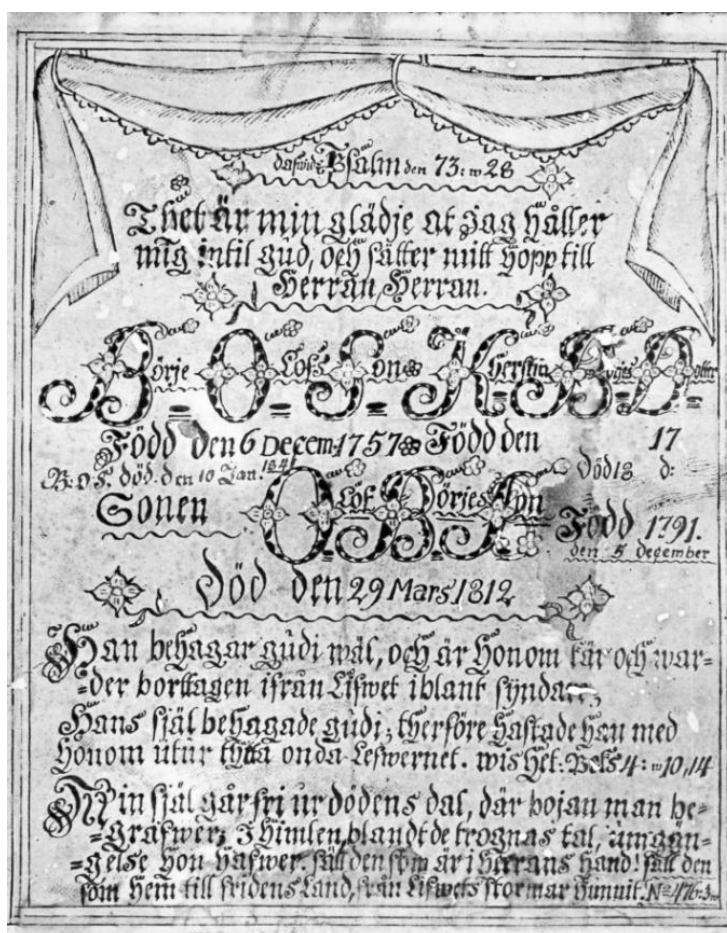 Psalm den 73: w 28
Thet är min glädje at Jag håller
mig intil gud, och sätter mitt hopp till
Herran Herran.
Börje Olofs Son Kherstin Börjes Dotter
Född den 6 Decem: 1757 Född den 17
B: O S. död. den 10 Jan. 184 Död 18 d:
Sonen Olof Börjes Son Född 1791.
den 5 december
Död den 29 Mars 1812
Han behagar gudi wäl, och är Honom kär och war=
=der borttagen ifrån Lifwet iblant syndare,
Hans själ behagade gudi; therföre hastade han med
honom utur thetta onda Lefwernet. wishet: Bok 4: w 10,14
Min själ går fri ur dödens dal, där bojan man be=
=grafwer; I Himlen, blandt de trognas tal, umgän=
=gelse hon hafwer. säll den som är i Herrans hand! säll den
som hem till fridens Land, från Lifwets stormar hunnit. No 476: 3